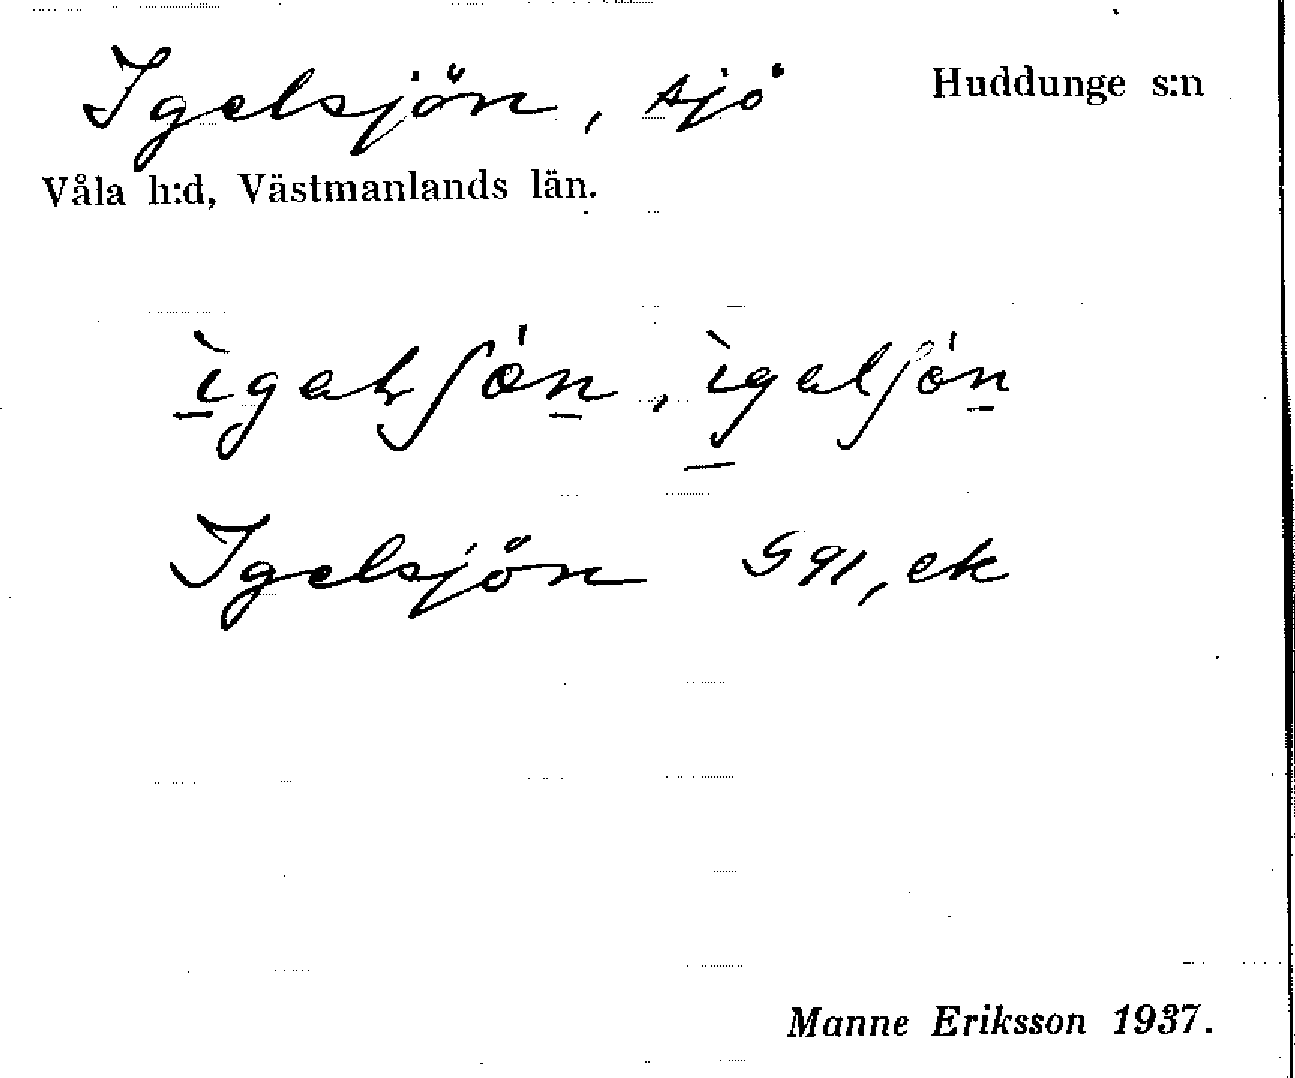 Igelsjön, sjö Huddunge s:n
Våla h:d, Västmanlands län.
Igelsjön G91, ek
Manne Eriksson 1937.